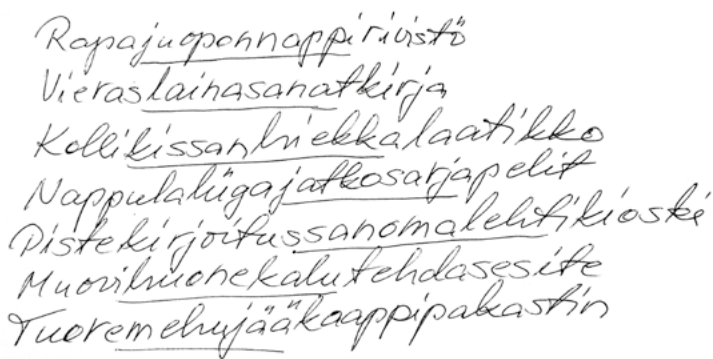 Rapajuoponnappirivistö
Vieraslainasanatkirja
Kollikissanhiekkalaatikko
Nappulaliigajatkosarjapelit
Pistekirjoitussanomalehtikioski
Muovihuonekalutehdasesite
Tuoremehujääkaappipakastin